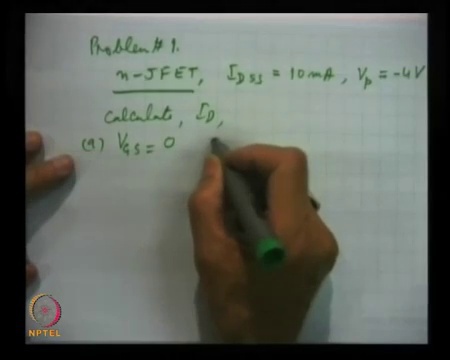 Problem # 1.
n-JFET, I_DSS = 10 mA, V_p = -4V
Calculate, I_D,
(a) V_GS = 0
NPTEL